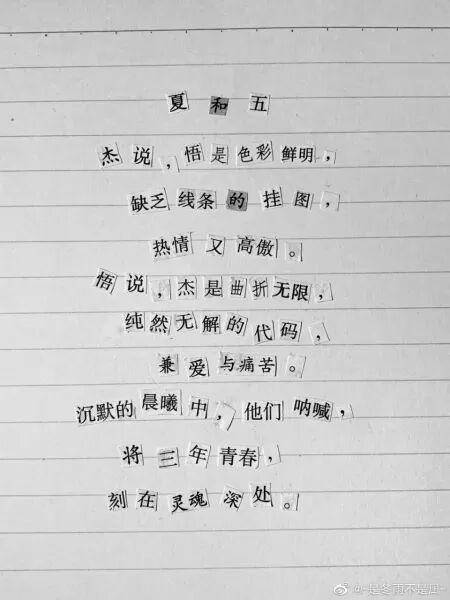 夏和五
杰说，悟是色彩鲜明，
缺乏线条的挂图，
热情又高傲。
悟说，杰是曲折无限，
纯然无解的代码，
兼爱与痛苦。
沉默的晨曦中，他们呐喊，
将三年青春，
刻在灵魂深处。